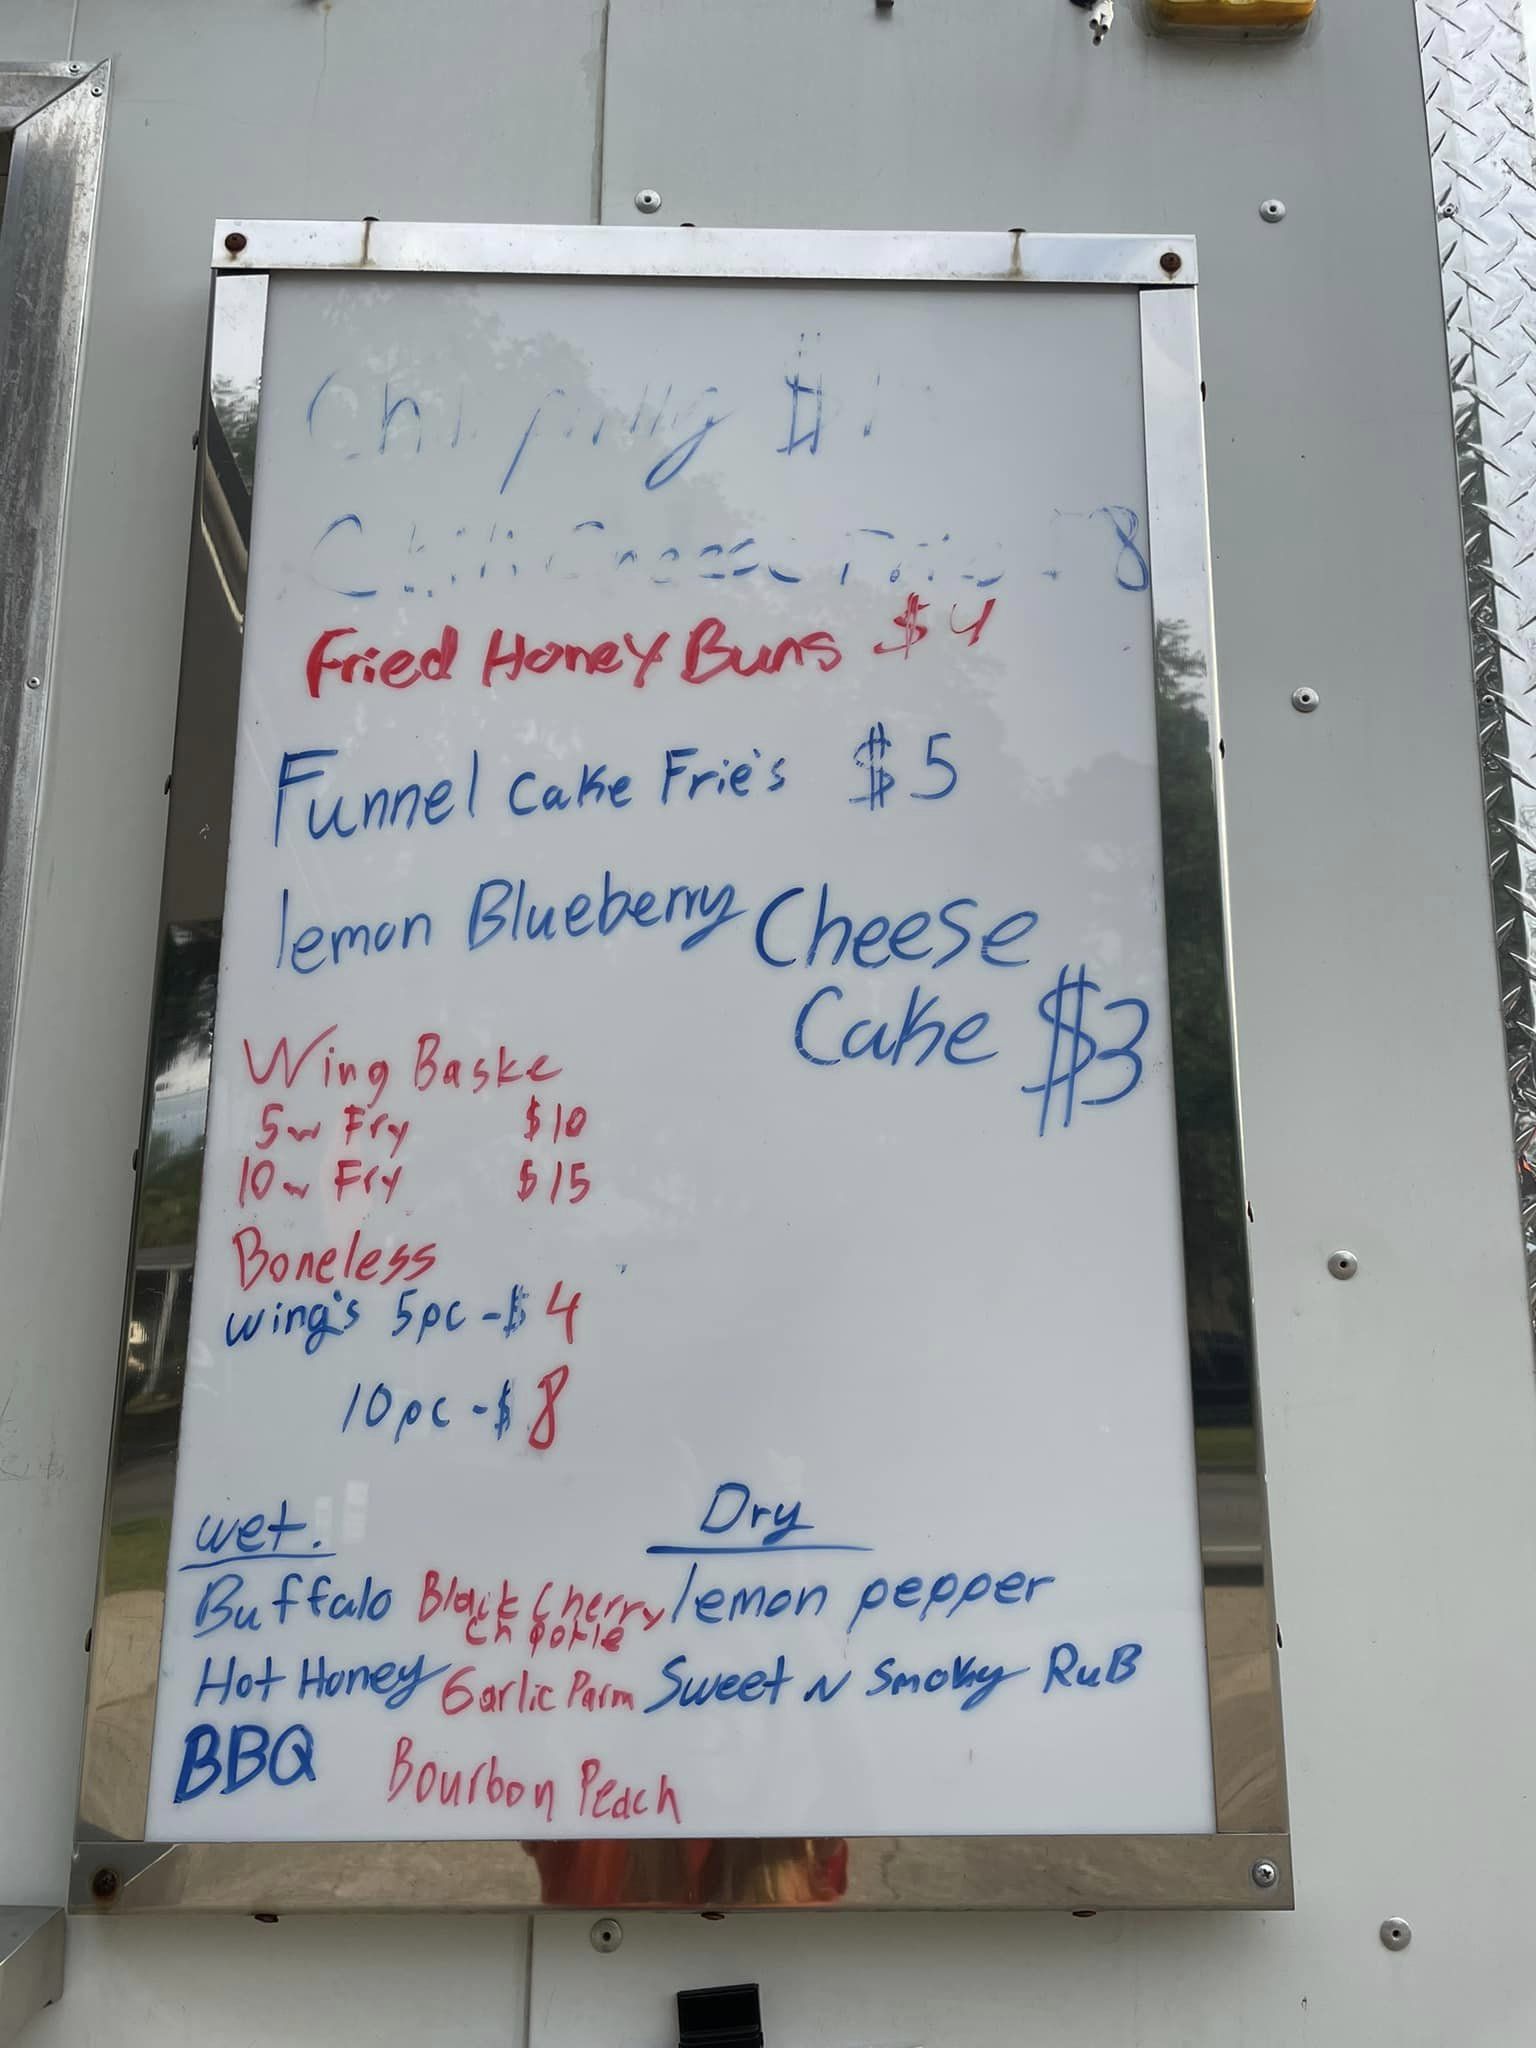 Fried Honey Buns $4
Funnel cake Frie's $5
lemon Blueberry Cheese
Cake $3
Wing Baske
5w Fry $10
10w Fry $15
Boneless
wing's 5pc - $4
10pc - $8
wet. Dry
Buffalo Black Cherry lemon pepper
Hot Honey Garlic Parm Sweet N Smoky RuB
BBQ Bourbon Peach